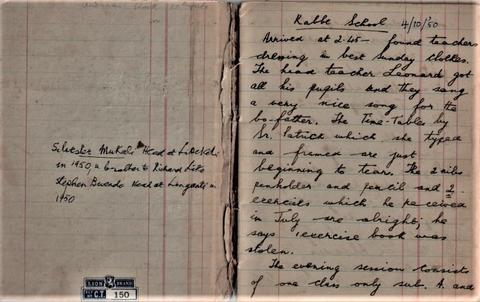 Silvester Mukele Head at
in 1950, a brother to Richard
Stephen Bwendo Head at in
1950
LION BRAND
C.T. 150
Kabbe School 4/10/50
Arrived at 2.45 - found teachers
dressing in best sunday clothes.
The head teacher Leonard got
all his pupils and they sang
a very nice song for the
bo-father. The Time-Tables by
Sr. Patrick which she typed
and framed are just
beginning to tear. The 2 nibs
penholder and pencil and 2
exercises which he received
in July are alright; he
says 1 exercise book was
stolen.
The evening session consists
of one class only sub. A. and